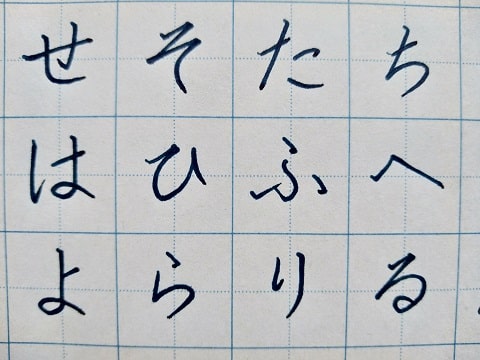 せそたち
はひふへ
よらりる